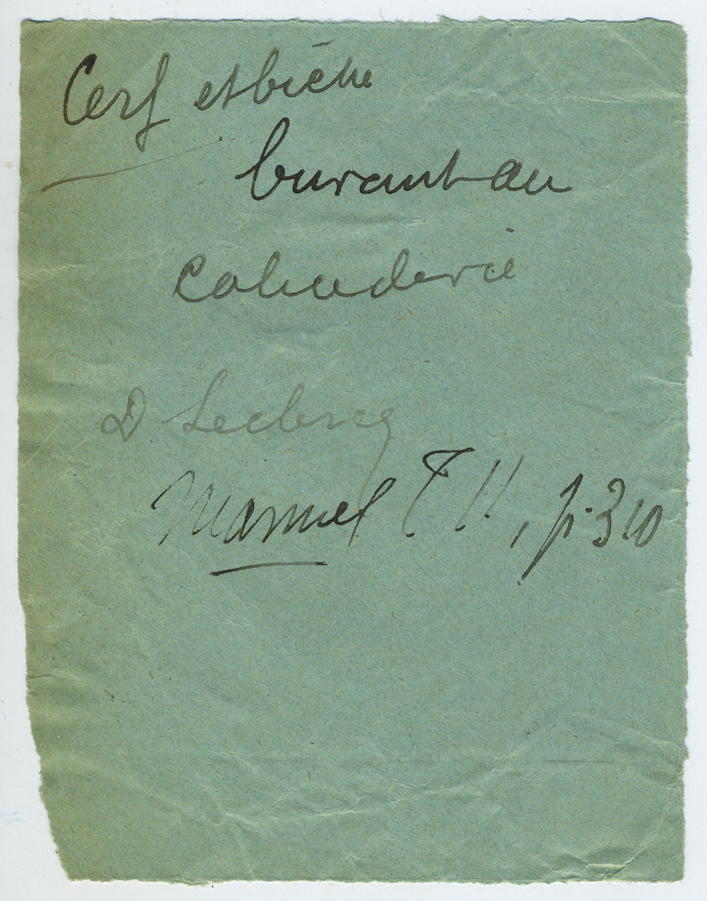 Cerf et biche
buvant au
D Leclercq
Manuel T II, p. 310